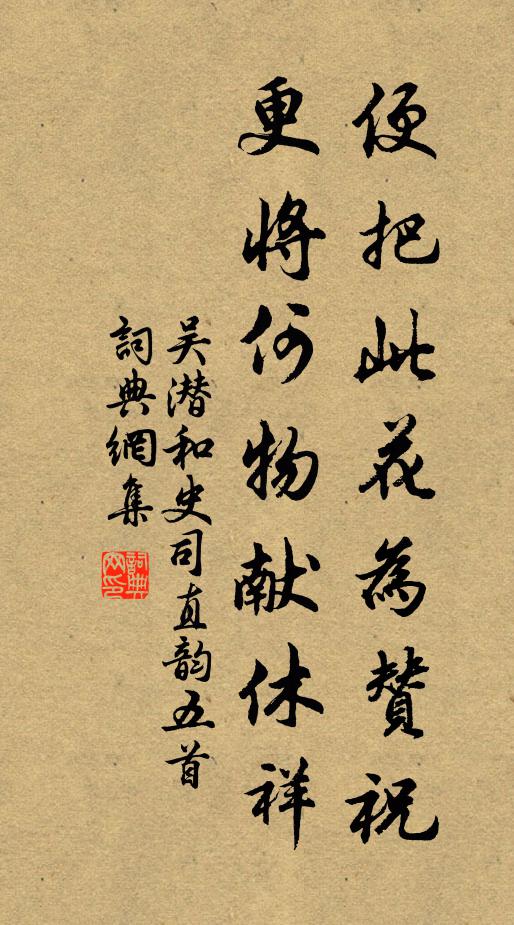 便把此花為贊祝
更將何物献休祥
吴潜和史司直韵五首
詞典網集
詞典網印